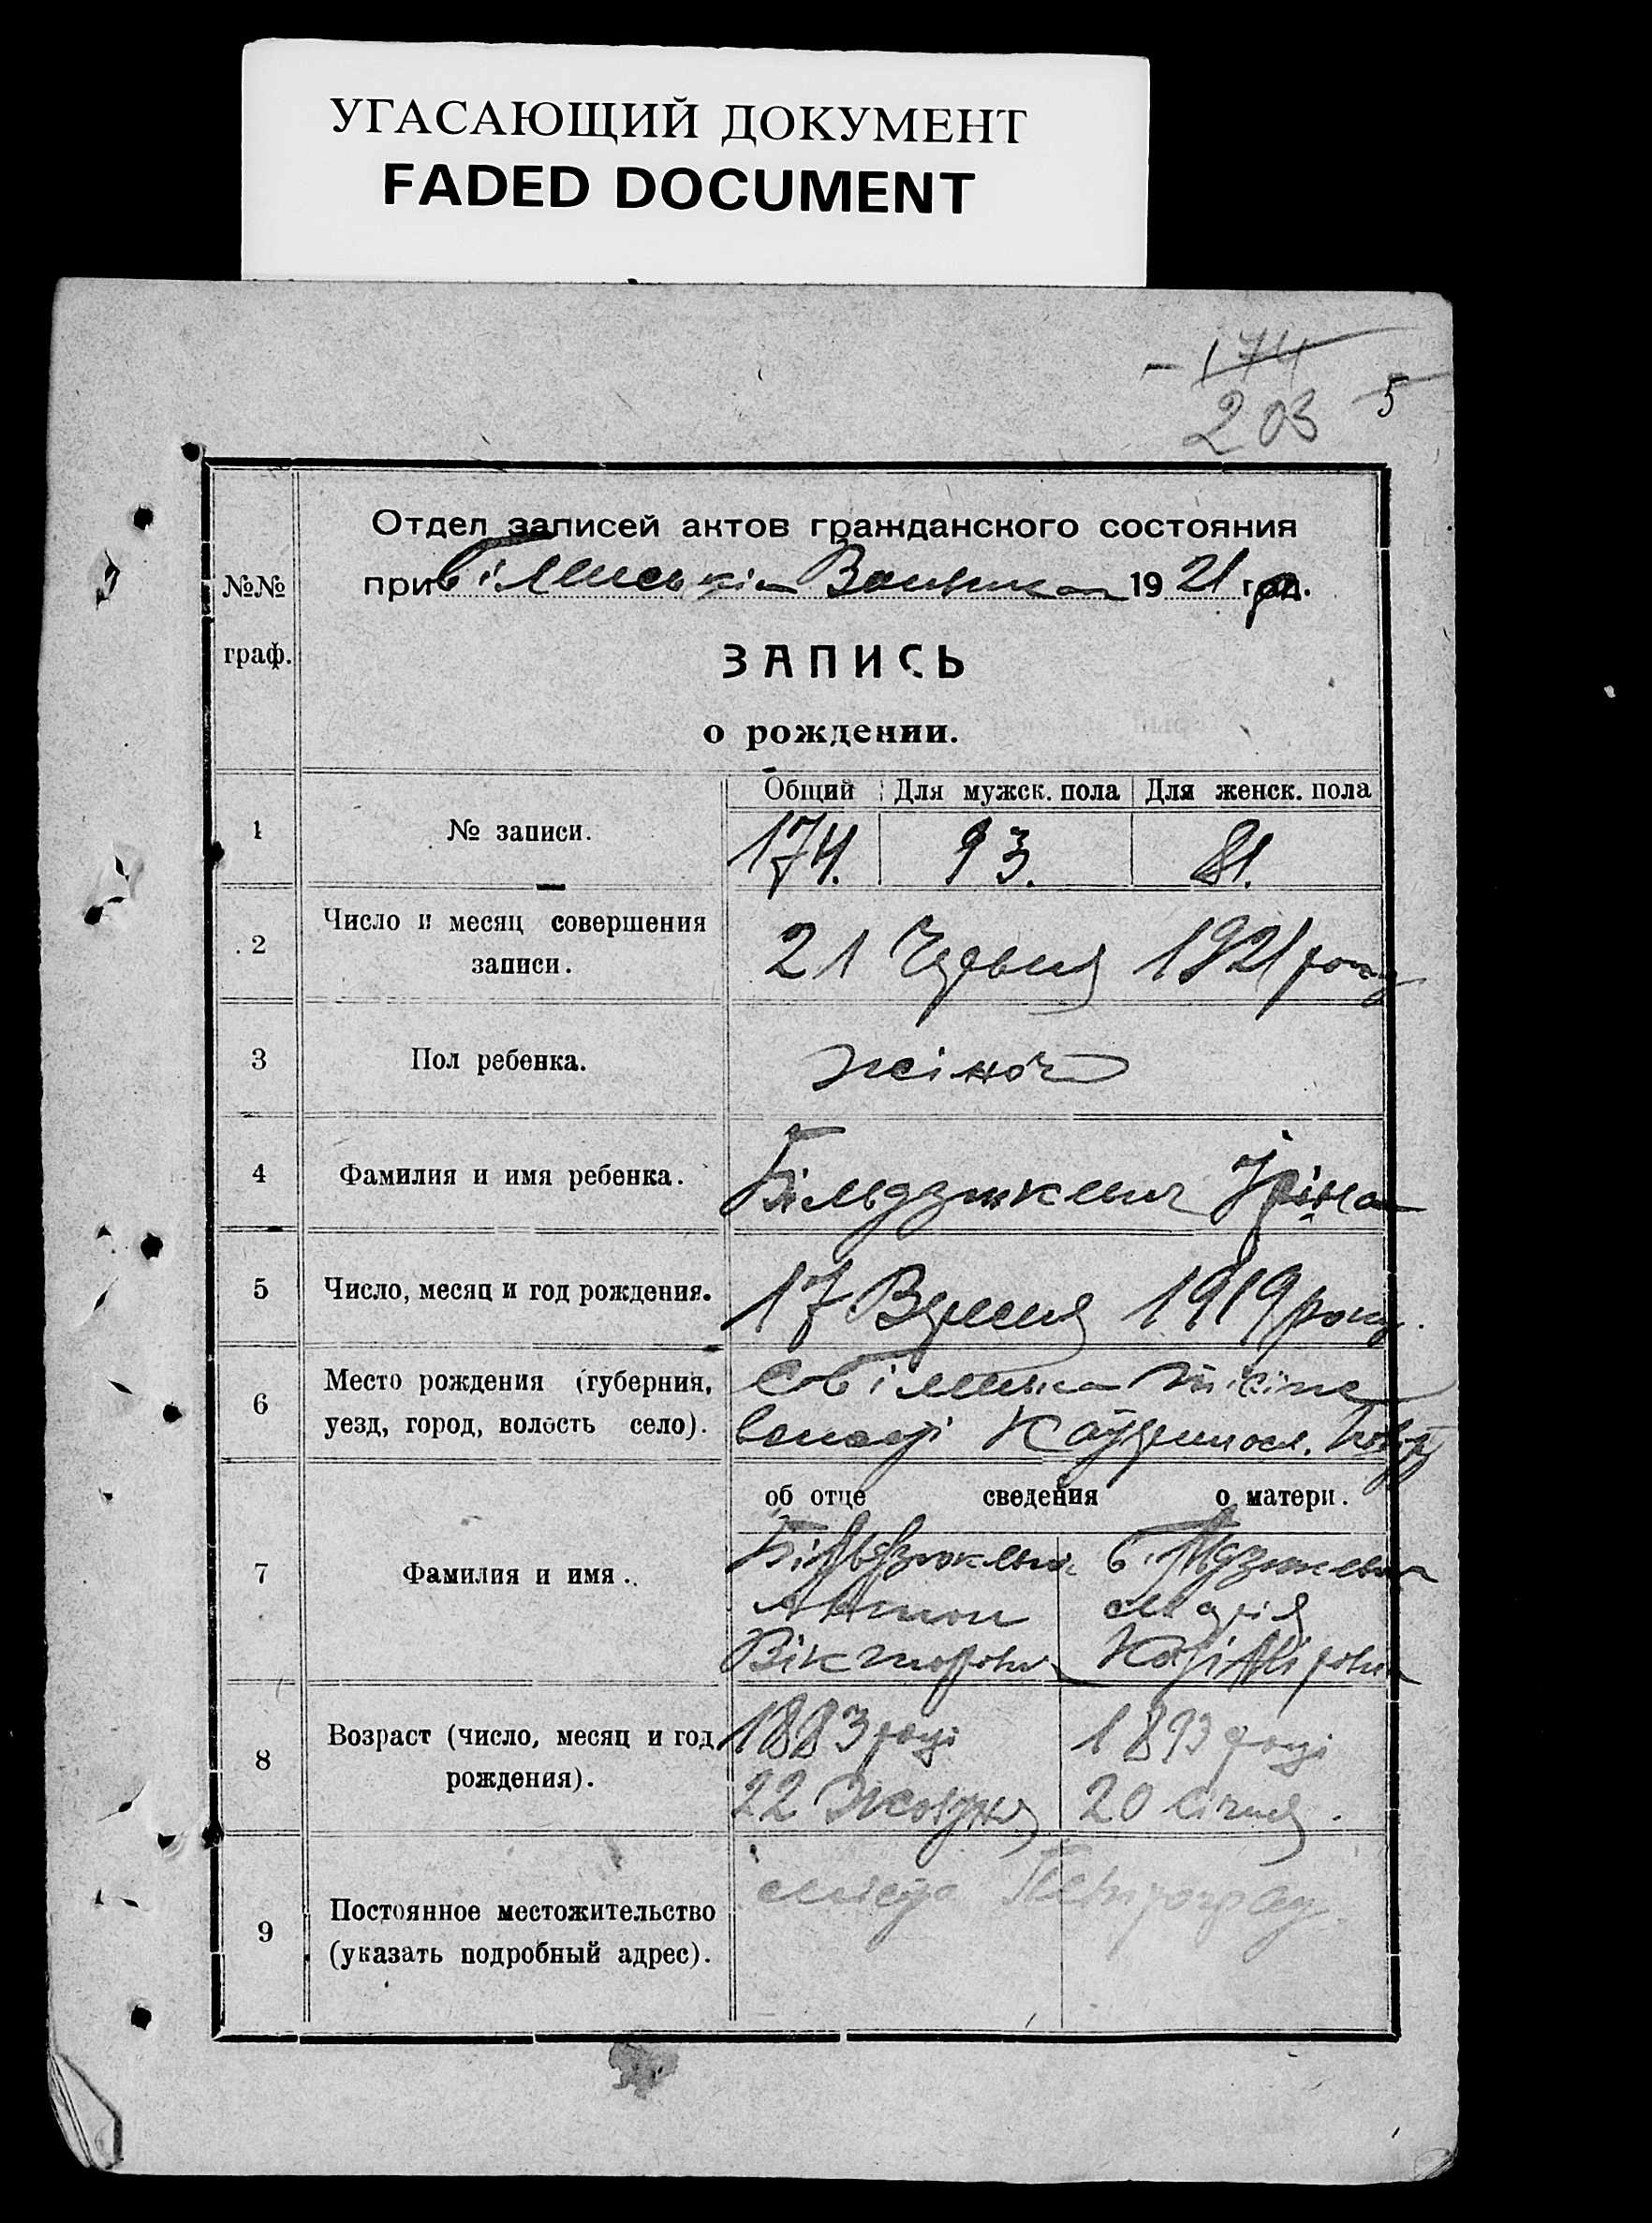 УГАСАЮЩИЙ ДОКУМЕНТ
FADED DOCUMENT
174
203 5
Отдел записей актов гражданского состояния
при 1921 год.
№№
граф.
ЗАПИСЬ
о рождении.
Общий Для мужск. пола Для женск. пола
1 № записи. 174. 93. 81.
2 Число и месяц совершения
записи.
21 Червня 1921 року
3 Пол ребенка. жіноч
4 Фамилия и имя ребенка. Ірина
5 Число, месяц и год рождения. 17 Вересня 1919 року.
6 Место рождения (губерния,
уезд, город, волость село).
об отце сведения о матери.
7 Фамилия и имя.
Антон Марія
Вікторович
8 Возраст (число, месяц и год
рождения).
1883 році 1893 році
22 Жовтня 20 Січня.
9 Постоянное местожительство
(указать подробный адрес).
місто Петроград